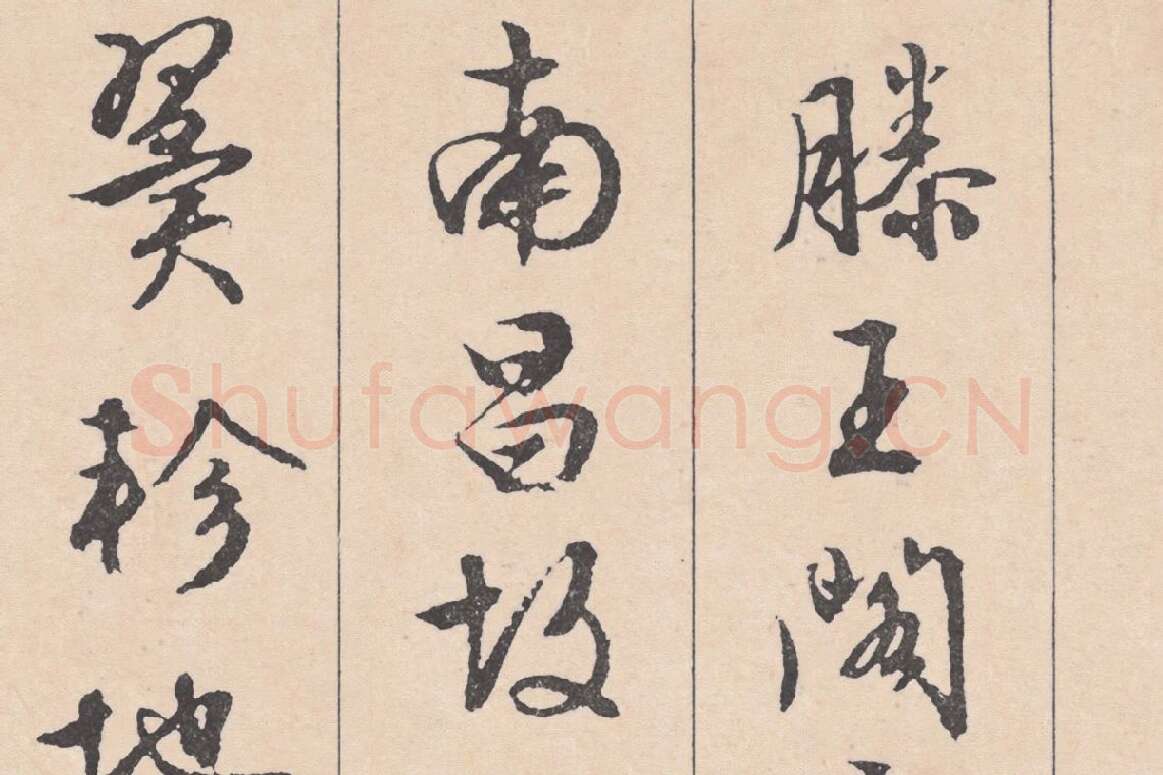 滕王閣
南昌故
翼軫地
Shufawang.CN